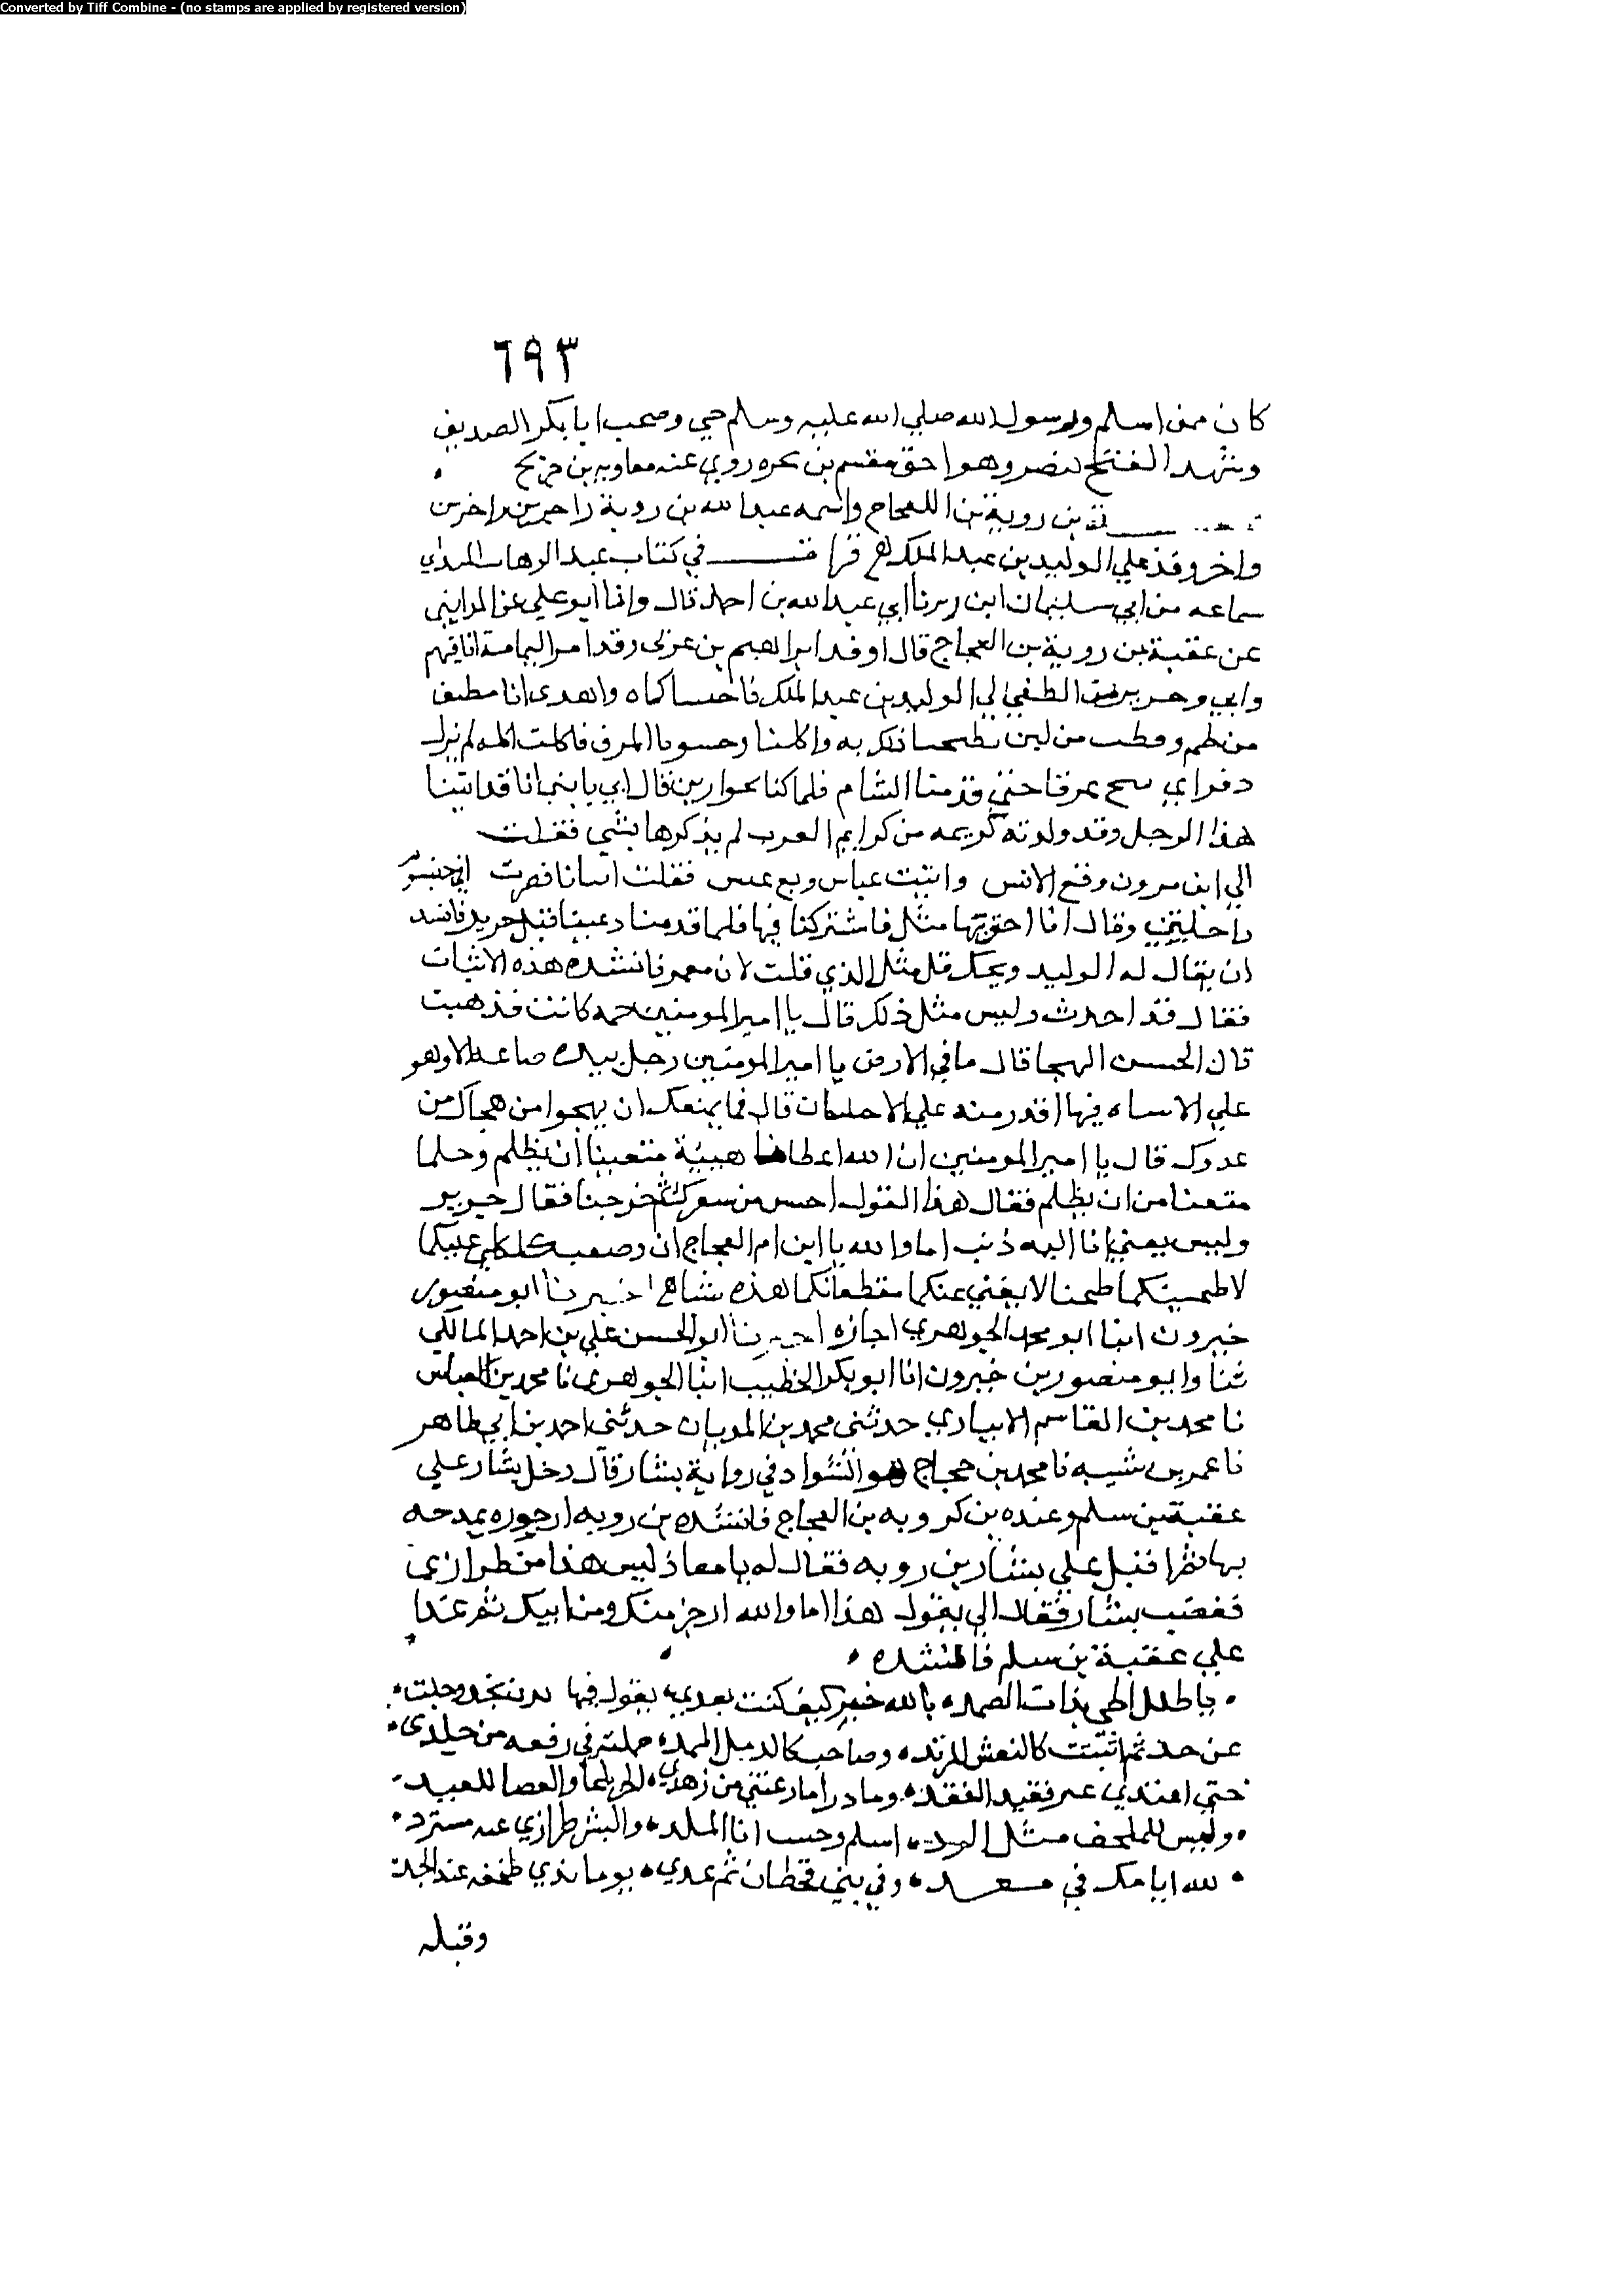 Converted by Tiff Combine - (no stamps are applied by registered version)
٦٩٣
كان ممن اسلم ورسول الله صلي الله عليه وسلم حي وصحب ابا بكر الصديق
وشهد الفتح بمصر وهو اخو مقسم بن بجره روي عنه معاويه بن خديج
بن روبة بن العجاج واسمه عبد الله بن روبة راجز بن راجز بن
واخر وفد علي الوليد بن عبد الملك قرات في كتاب عبد الوهاب الميداني
سماعه من ابي سليمان ابن زبر نا ابي عبد الله بن احمد قال وانا ابو علي عن المدايني
عن عقبة بن روبة بن العجاج قال اوفد ابراهيم بن عربي وقد امر اليمامة انا فيهم
وابي وجرير بن الخطفي الي الوليد بن عبد الملك واهدي انا
من لحم من لبن به واكلنا المرق فاكلت لم نزل
حتي قدمنا الشام فلما كنا بحوارين قال ابي يا بني انا قد اتينا
هذا الرجل وقد ولدته كريمه من كرايم العرب لم يذكرها بشي فقلت
الي ابن مروان وقع الانس وابنت عباس وبع عبس فقلت ابياتا فصرت الي جنب
راحلتي وقال انا احق بها فاشتركنا فيها فلما قدمنا دعينا قبل جرير فانشد
ان يقال له الوليد ويحك قل مثل الذي قلت لان معمر فانشده هذه الابيات
فقال قد احدث وليس مثل ذلك قال يا امير المومنين كانت فذهبت
قال الحسن الهجا قال ما في الارض يا امير المومنين رجل بيده صناعه الا وهو
علي الاساه فيها اقدر منه علي الاحسان قال فما يمنعك ان يهجوا من هجاك من
عدوك قال يا امير المومنين ان الله اعطانا هيبة منعتنا ان نظلم وحلما
منعنا من ان نظلم فقال هذا القول احسن من شعرك ثم خرجنا فقال جرير
وليس بيني انا اليه ذنب اما والله يا ابن ام العجاج ان وضعت كلكلي عليكما
لاطحنكما طحنا لا يغني عنكما مقطعاتكما هذه شاهـ اخبرنا ابو منصور بن
خيرون انبا ابو محمد الجوهري اجازه اخبرنا ابو الحسن علي بن احمد المالكي
ثنا وابو منصور بن خيرون انا ابو بكر الخطيب انبا الجوهري نا محمد بن العباس
نا محمد بن القاسم الانباري حدثني محمد بن المرزبان حدثني احمد بن ابي طاهر
نا عمر بن شبه نا محمد بن حجاج هو السواد في رواية بشار قال دخل بشار علي
عقبة بن سلم وعنده بن لروبه بن العجاج فانشده بن روبه ارجوزه يمدحه
بها ثم اقبل علي بشار بن روبه فقال له يا معاذ ليس هذا من طرازي
فغضب بشار فقال الي يقول هذا اما والله ارجز منك ومن ابيك ثم غدا
علي عقبة بن سلم فانشده
يا طلل الحي بذات الصمد بالله خبر كيف كنت بعدي يقول فيها بدت بخد وجلت
عن خد ثم انثنت كالنفس المرتد وصاحب كالدمل الممد حملته في رقعه من جلدي
حتي اغتدي غير فقيد الفقد وما درا ما رغبتي من زهدي الحر يلحا والعصا للعبد
وليس للملحف مثل الرد اسلم وحييت ابا الملد والبس طرازي غير مسترد
لله ايامك في معد وفي بني قحطان ثم عدي يوما بذي طخفه عند الجد
وقبله